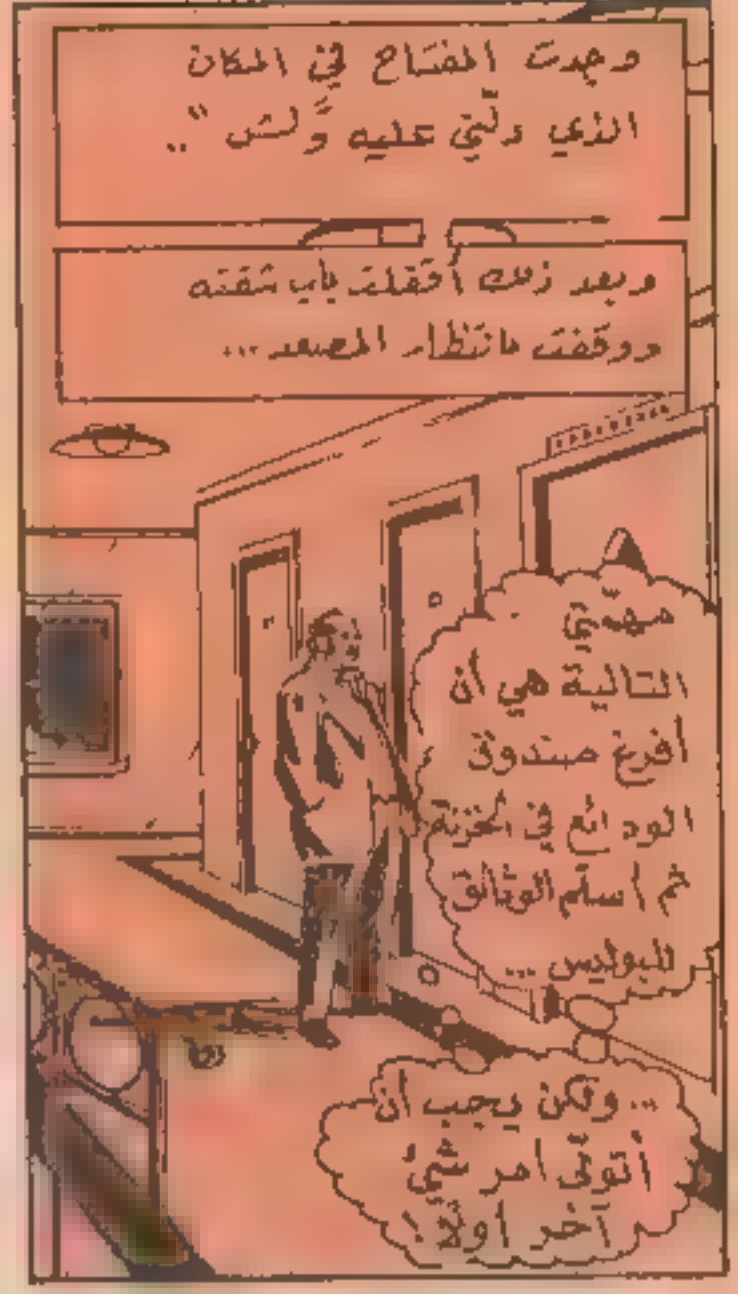 وجدت المفتاح في المكان
الذي دلّني عليه وَلش "..
وبعد ذلك أقفلت باب شقته
ووقفت بانتظار المصعد ...
مهمّتي
التالية هي أن
أفرغ صندوق
الودائع في الخزنة
ثم أسلّم الوثائق
للبوليس ...
... ولكن يجب أن
أتولّى أمر شيء
آخر أولاً !